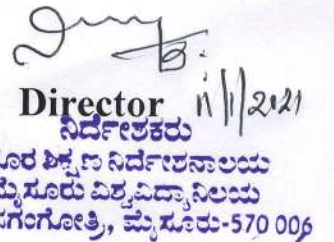 Director 11/1/2021
ನಿರ್ದೇಶಕರು
ದೂರ ಶಿಕ್ಷಣ ನಿರ್ದೇಶನಾಲಯ
ಮೈಸೂರು ವಿಶ್ವವಿದ್ಯಾನಿಲಯ
ಗಂಗೋತ್ರಿ, ಮೈಸೂರು-570 006